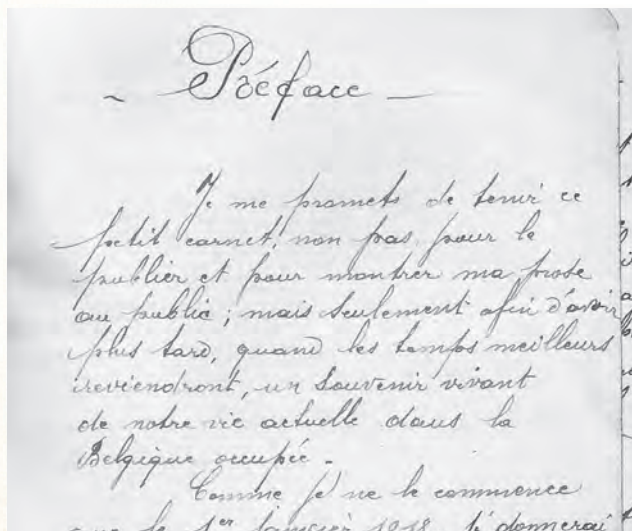 - Préface -
Je me promets de tenir ce
petit carnet, non pas pour le
publier et pour montrer ma prose
au public ; mais seulement afin d'avoir
plus tard, quand les temps meilleurs
reviendront, un souvenir vivant
de notre vie actuelle dans la
Belgique occupée.
Comme je ne le commence
que le 1er Janvier 1918, donnerai